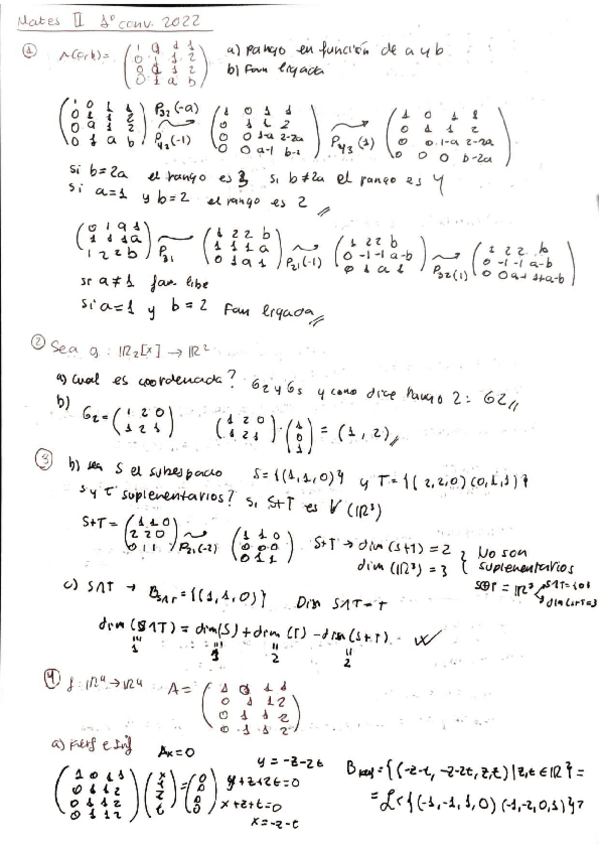 Mates II 1º conv. 2022
① r(a,b) = (1 0 1 1 / 0 1 1 2 / 0 a 1 2 / 0 1 a b) a) rango en función de a y b
b) Fam ligada
(1 0 1 1 / 0 1 1 2 / 0 a 1 2 / 0 1 a b) P32(-a) P42(-1) (1 0 1 1 / 0 1 1 2 / 0 0 1-a 2-2a / 0 0 a-1 b-2) P43(1) (1 0 1 1 / 0 1 1 2 / 0 0 1-a 2-2a / 0 0 0 b-2a)
si b=2a el rango es 3, si b≠2a el rango es 4
si a=1 y b=2 el rango es 2
(0 1 a 1 / 1 1 1 a / 1 2 2 b) P31 (1 2 2 b / 1 1 1 a / 0 1 a 1) P21(-1) (1 2 2 b / 0 -1 -1 a-b / 0 1 a 1) P32(1) (1 2 2 b / 0 -1 -1 a-b / 0 0 a-1 1+a-b)
si a≠1 fam libe
si a=1 y b=2 Fam ligada
② Sea g: ℝ2[x] → ℝ²
a) cual es coordenada? G2 y G5 y como dice rango 2: G2
b) G2 = (1 2 0 / 1 2 1) (1 2 0 / 1 2 1) · (1 / 0 / 1) = (1, 2)
③ b) sea S el subespacio S={(1,1,0)} y T={(2,2,0)(0,1,1)}
S y T suplementarios? Si, S+T es V (ℝ³)
S+T = (1 1 0 / 2 2 0 / 0 1 1) P21(-2) (1 1 0 / 0 0 0 / 0 1 1) S+T → dim(S+T)=2 dim(ℝ³)=3 } No son suplementarios
S⊕T = ℝ³ S∩T={0} dim(S+T)=3
c) S∩T → B S∩T = {(1,1,0)} Dim S∩T=1
dim(S∩T) = dim(S) + dim(T) - dim(S+T)
1 1 2 2
④ f: ℝ⁴ → ℝ⁴ A = (1 0 1 1 / 0 1 1 2 / 0 1 1 2 / 0 1 1 2)
a) Kerf e Imf Ax=0
(1 0 1 1 / 0 1 1 2 / 0 1 1 2 / 0 1 1 2) (x / y / z / t) = (0 / 0 / 0 / 0) y=-z-2t
y+z+2t=0
x+z+t=0
x=-z-t
B kerf = {(-z-t, -z-2t, z, t) | z, t ∈ ℝ} =
= ℒ<{(-1,-1,1,0) (-1,-2,0,1)}>